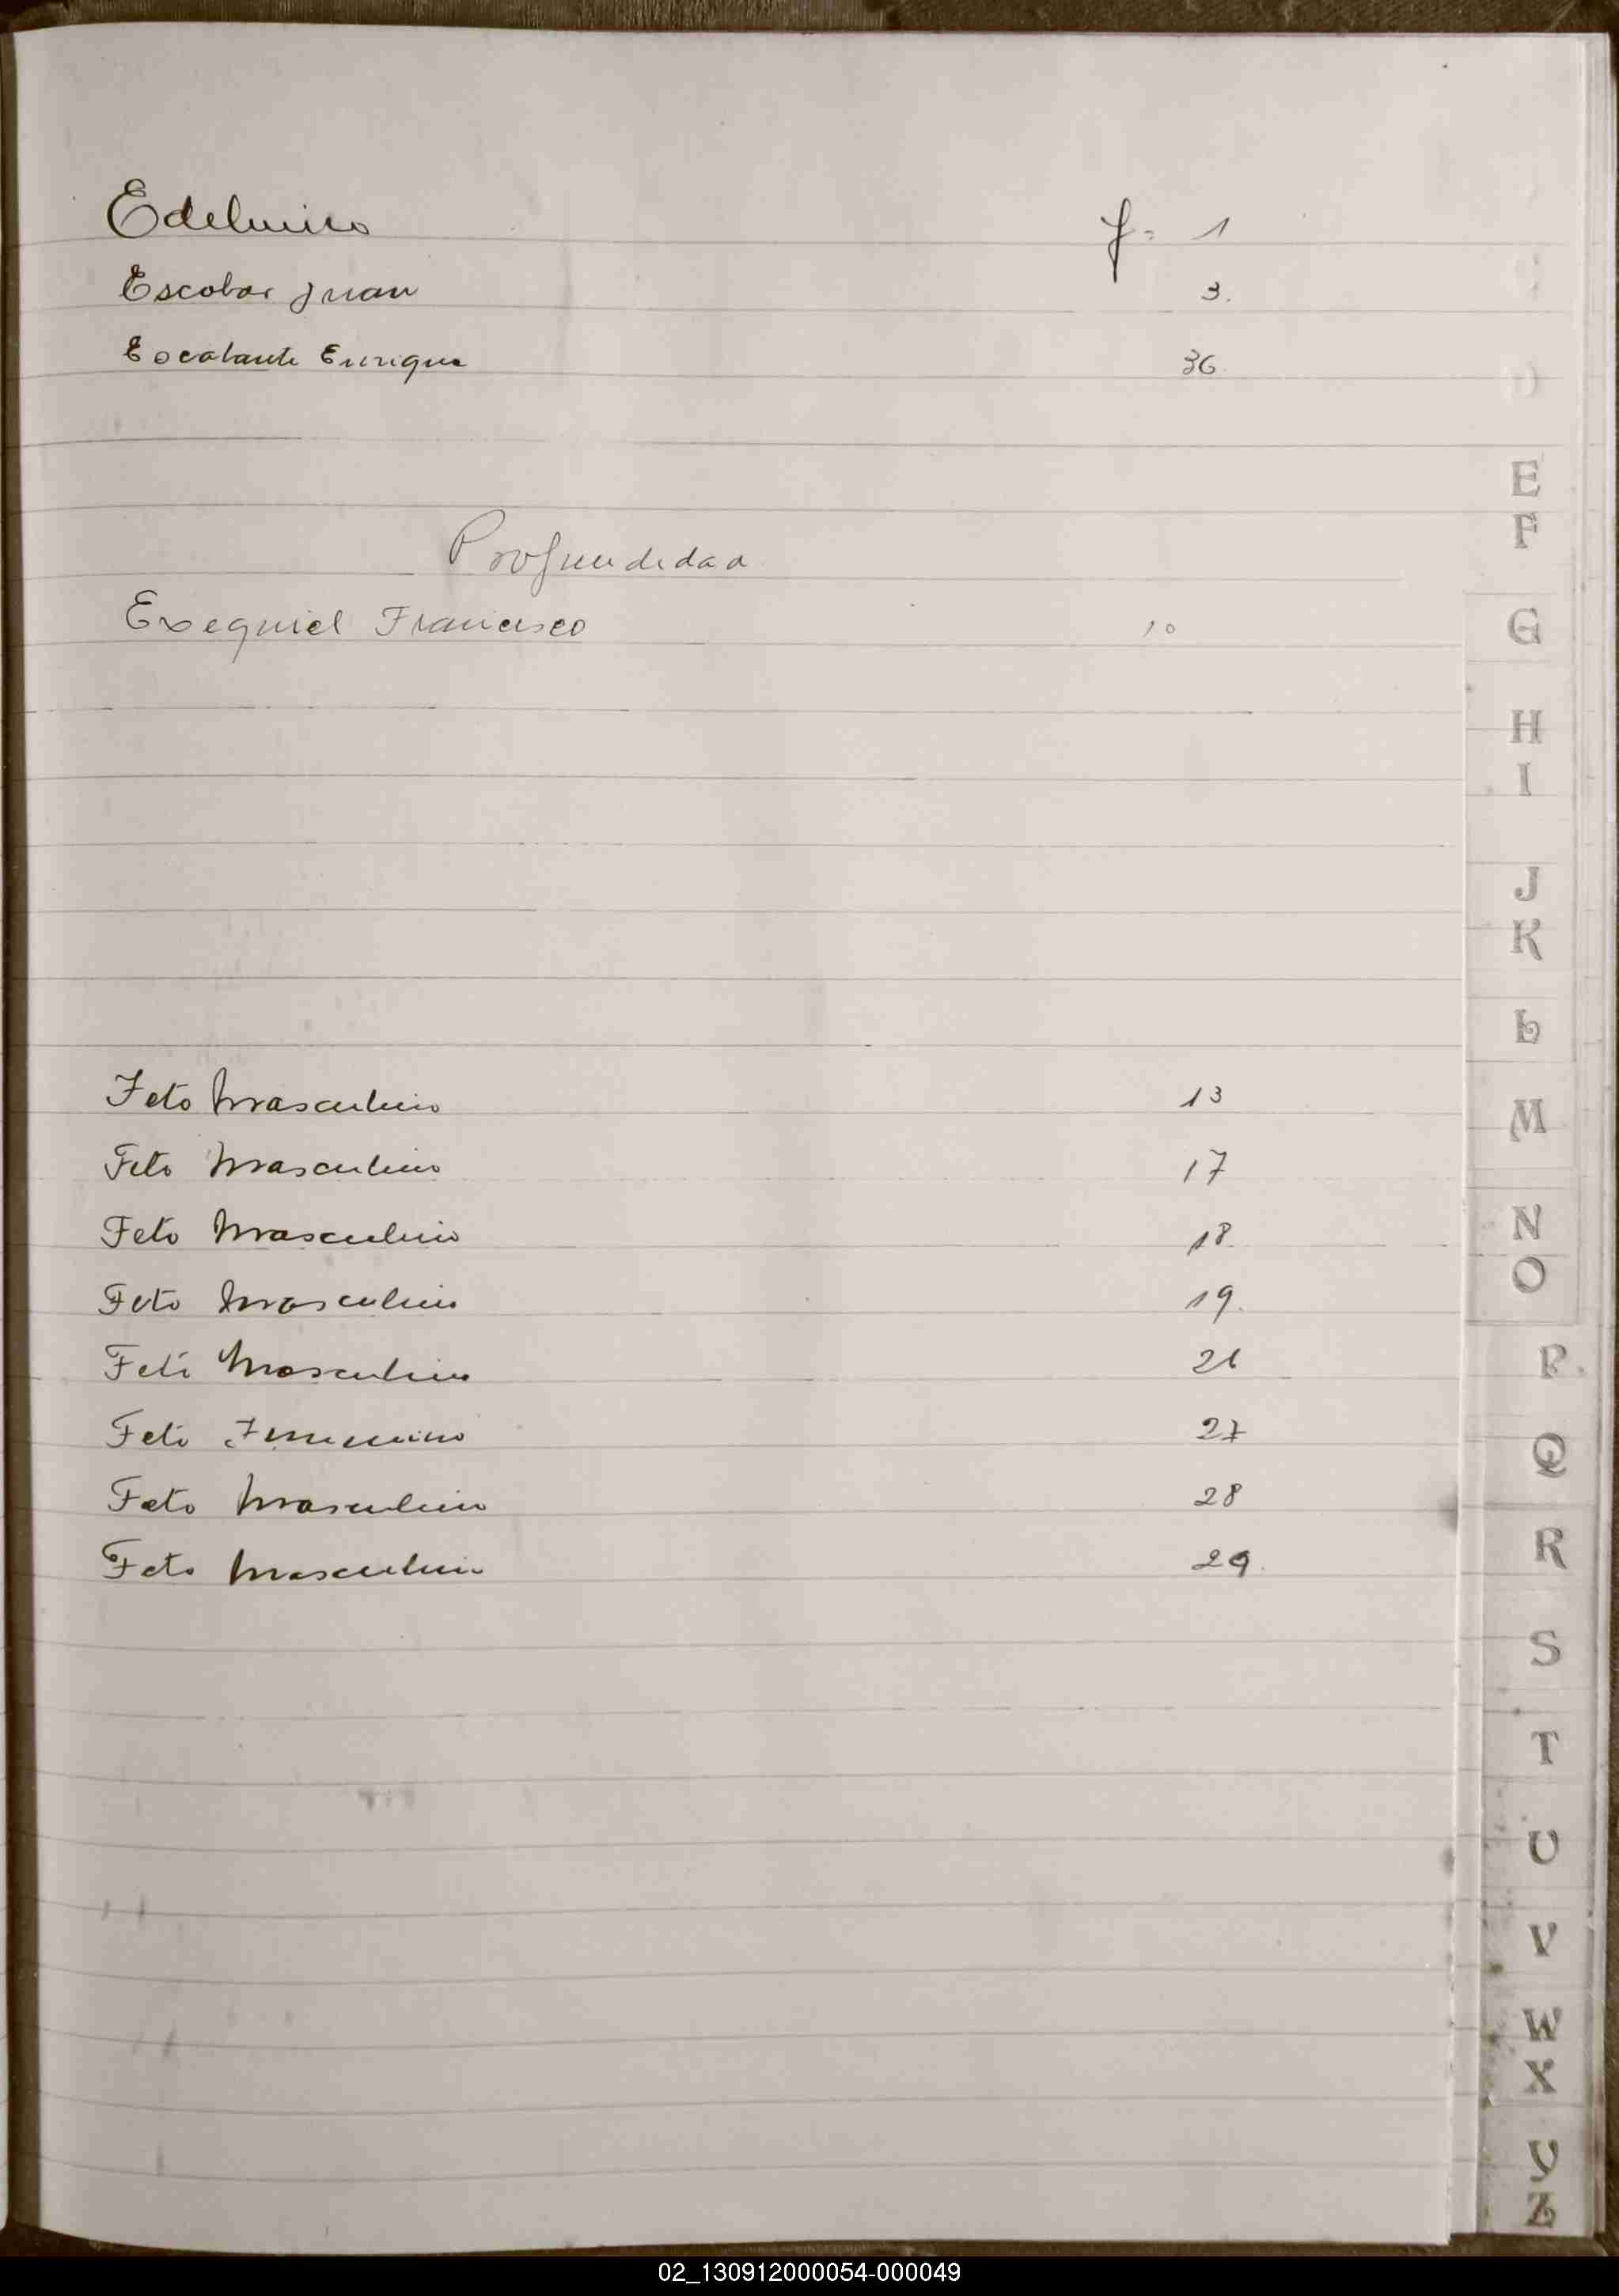 Edelmiro f= 1
Escobar Juan 3.
Escalante Enrique 36
Profundidad
Exequiel Francisco 10
Feto Masculino 13
Feto Masculino 17
Feto Masculino 18
Feto Masculino 19.
Feto Masculino
Feto Femenino 27
Feto Masculino 28
Feto Masculino 29.
E
F
G
H
I
J
K
L
M
N
O
P
Q
R
S
T
U
V
W
X
Y
Z
02_130912000054-000049